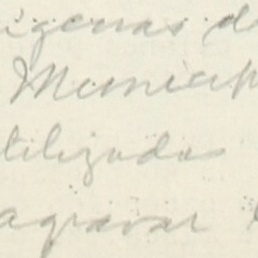 igenas d
Municip
tilizada
agravar